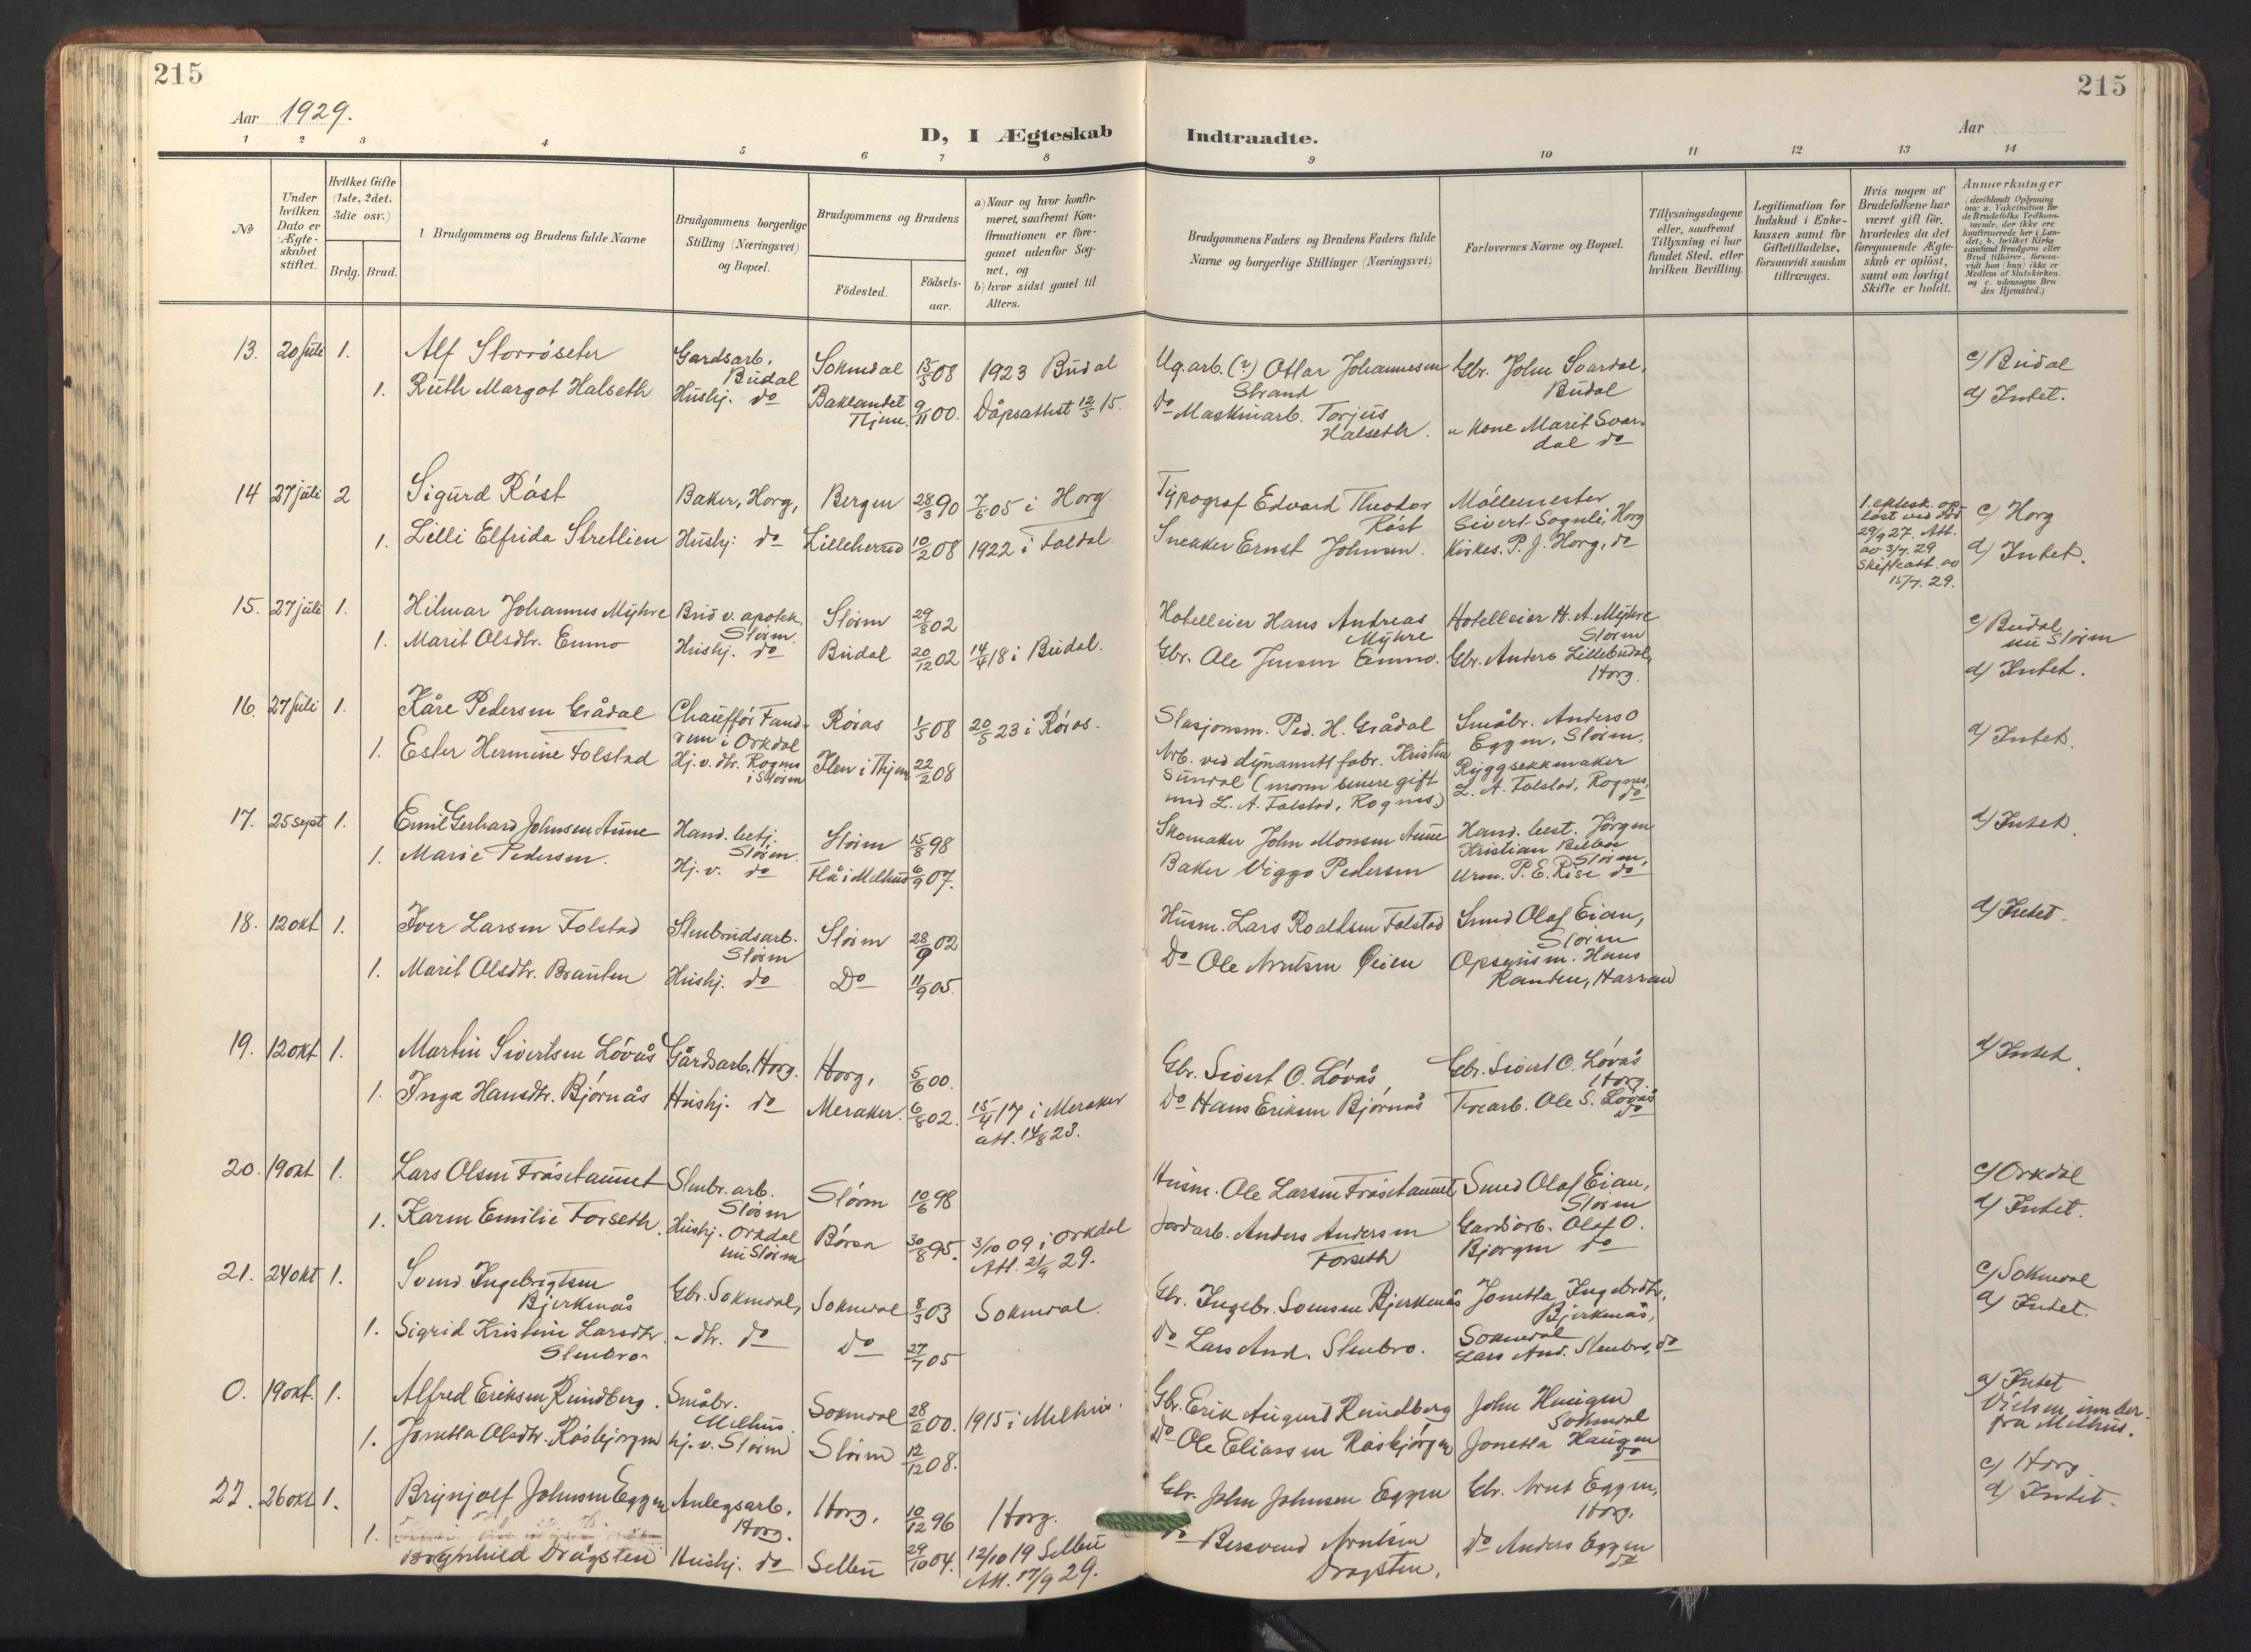 215
215
Aar 1929.
D, I Ægteskab Indtraadte.
Aar
1 2 3 4 5 6 7 8 9 10 11 12 13 14
No
Under hvilken Dato er Ægteskabet stiftet.
Hvilket Gifte (1ste, 2det, 3die osv.)
Brdg. Brud.
Brudgommens og Brudens fulde Navne
Brudgommens borgerlige Stilling (Næringsvei) og Bopæl.
Brudgommens og Brudens
Fødested.
Fødselsaar.
a) Naar og hvor konfirmeret, saafremt Konfirmationen er foregaaet udenfor Sognet, og
b) hvor sidst gaaet til Alters.
Brudgommens Faders og Brudens Faders fulde Navne og borgerlige Stillinger (Næringsvei)
Forlovernes Navne og Bopæl.
Tillysningsdagene eller, saafremt Tillysning ei har fundet Sted, efter hvilken Bevilling.
Legitimation for Indskud i Enkekassen samt for Giftetilladelse, forsaavidt saadan tiltrænges.
Hvis nogen af Brudefolkene har været gift før, hvorledes da det foregaaende Ægteskab er opløst, samt om lovligt Skifte er holdt.
Anmærkninger
13. 20 juli 1. Alf Storrøseter Gardsarb. Budal Soknedal 15/5 08 1923 Budal Ug.arb. (?) Otlar Johannesen Strand Gbr. John Svardal, Budal c) Budal
1. Ruth Margot Halseth Hushj. do Baklandet Thjem. 9/11 00. Dåpsattest 12/5 15. do Maskinarb. Torjus Halseth. " Kone Marit Svardal do d) Intet.
14 27 juli 2 Sigurd Røst Baker, Horg, Bergen 28/3 90 7/5 05 i Horg Typograf Edvard Theodor Røst Møllemester Sivert Sognli, Horg 1. ektesk. opløst ved død 29/9 27. Att. av 3/7. 29 Skifteatt. av 15/7. 29. c) Horg
1. Lilli Elfrida Stretlien Hushj: do Lilleherud 10/2 08 1922 i Foldal. Snekker Ernst Johnsen. Kirkes. P. J. Horg, do d) Intet.
15. 27 juli 1. Hilmar Johannes Myhre Bud v. apotek, Støren. Støren 29/8 02 Hotelleier Hans Andreas Myhre Hotelleier H. A. Myhre Støren c) Budal nu Støren
1. Marit Olsdtr. Enmo Hushj. do Budal 20/12 02 14/4 18 i Budal. Gbr. Ole Jensen Enmo. Gbr. Anders Lillebudal, Horg. d) Intet.
16. 27 juli 1. Kåre Pedersen Grådal Chauffør Fandrem i Orkdal Røros 1/5 08 20/5 23 i Røros. Stasjonsm. Ped. H. Grådal Småbr. Anders O Eggen, Støren, d) Intet.
1. Ester Hermine Folstad Hj. v. dtr. Rognes i Støren Ilen i Thjem 22/2 08 Arb. ved dynamitfabr. Kristen Sundal (moren senere gift med L. A. Folstad, Rognes) Ryggsekkmaker L. A. Folstad, Rognes, do
17. 25 sept 1. Emil Gerhard Johnsen Aune Hand. betj. Støren. Støren 15/8 98 Skomaker John Monsen Aune Hand. best. Jørgen Kristian Støren, d) Intet.
1. Marie Pedersen. Hj. v. do Flå i Melhus 6/9 07. Baker Viggo Pedersen Urm. P. E. Rise do
18. 12 okt 1. Iver Larsen Folstad Stenbruddsarb. Støren Støren 28/9 02 Husm. Lars Roaldsen Folstad Smed Olaf Eian, Støren d) Intet.
1. Marit Olsdtr. Brauten Hushj. do Do 11/9 05. Do Ole Arntsen Øien Opsynsm. Hans Randen, Harran
19. 12 okt 1. Martin Sivertsen Løvås Gårdsarb. Horg. Horg, 5/6 00. Gbr. Sivert O. Løvås, Gbr. Sivert O. Løvås Horg. d) Intet.
1. Inga Hansdtr. Bjørnås Hushj. do Meraker. 6/8 02. 15/4 17 i Meraker att. 14/8 23. Do Hans Eriksen Bjørnås Trearb. Ole S. Løvås do
20. 19 okt 1. Lars Olsen Frøsetaunet Stenbr. arb. Støren Støren 10/6 98 Husm. Ole Larsen Frøsetaunet Smed Olaf Eian, Støren c) Orkdal
1. Karen Emilie Forseth. Hushj. Orkdal nu Støren Børsa 30/8 95. 3/10 09 i Orkdal Att. 21/9 29. Jordarb. Anders Andersen Forseth Gardsarb. Olaf O. Bjorgen do d) Intet.
21. 24 okt 1. Svend Ingebrigtsen Bjerkenås Gbr. Soknedal, Soknedal 8/3 03 Soknedal. Gbr. Ingebr. Svensen Bjerkenås Jonetta Ingebrdtr. Bjerkenås, Soknedal c) Soknedal
1. Sigrid Kristine Larsdtr. Stenbro. - dtr. do do 27/7 05 Do Lars And. Stenbro. Lars And. Stenbro, do d) Intet.
0. 19 okt. 1. Alfred Eriksen Reindberg. Småbr. Melhus. Soknedal 28/2 00. 1915 i Melhus. Gbr. Erik August Reindberg John Haugen Soknedal d) Intet Vielsen innber. fra Melhus.
1. Jonetta Olsdtr. Rosbjørgen hj. v. Støren Støren 12/12 08. Do Ole Eliassen Rosbjørgen Jonetta Haugen do
22. 26 okt 1. Brynjolf Johnsen Eggen Anlegsarb. Horg. Horg, 10/12 96 Horg. Gbr. John Johnsen Eggen Gbr. Arnt Eggen, Horg. c) Horg
1. Borghild Dragsten Hushj. do Selbu 29/10 04. 12/10 19 Selbu Att. 17/9 29. Do Bersvend Arntsen Dragsten. Do Anders Eggen do d) Intet.